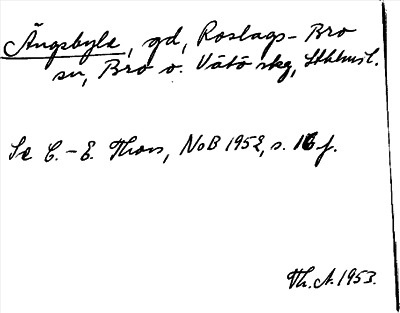 Ängsbyle, gd, Roslags-Bro
sn, Bro o. Vätö skg, Sthlmsl.
Se C.-E. Thors, NoB 1952, s. 16 f.
Th. A. 1953.